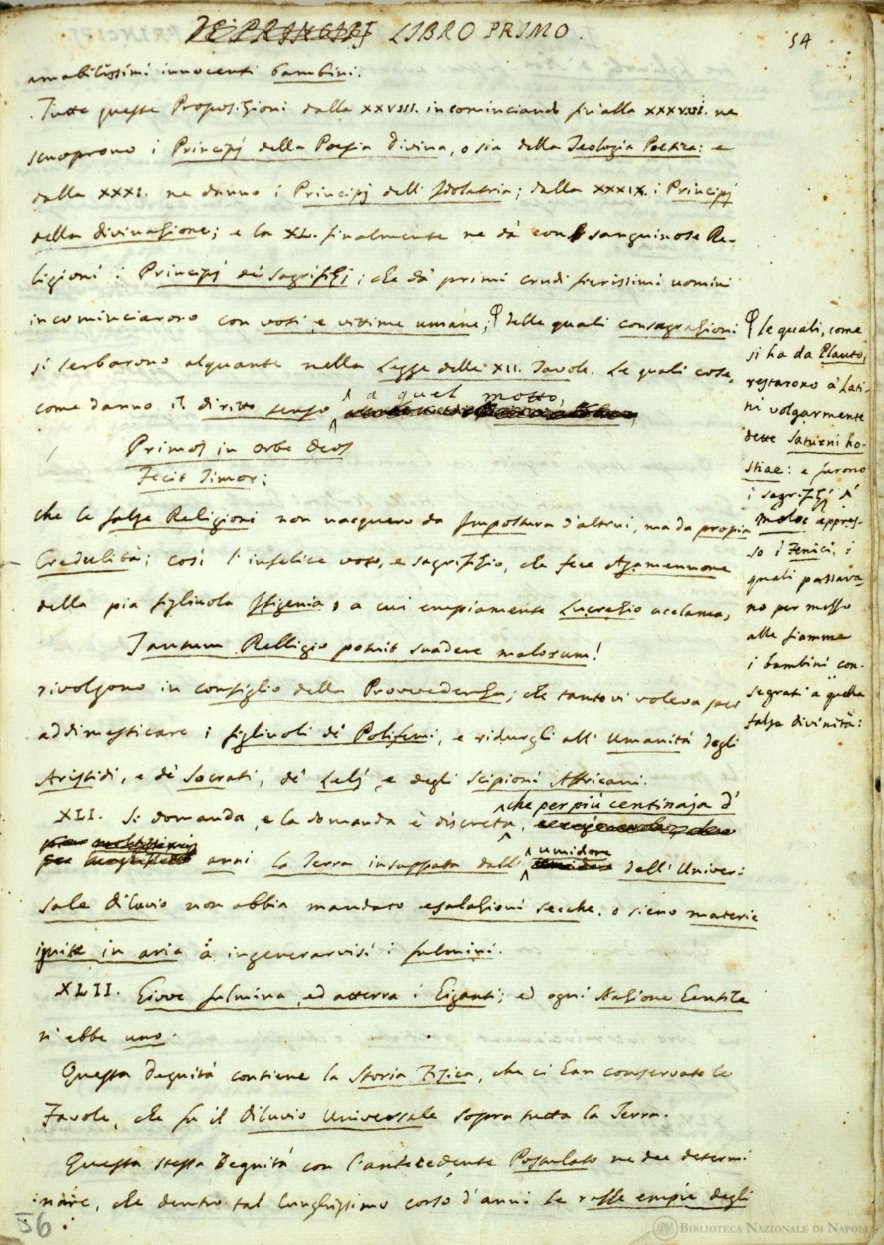 DE' PRINCIPJ LIBRO PRIMO.
54
amabilissimi innocenti bambini.
Tutte queste Proposizioni dalla XXVIII. incominciando fin'alla XXXVIII. ne
scuoprono i Principj della Poesia Divina, o sia della Teologia Poetica: e
dalla XXXI. ne danno i Principj dell' Idolatria; dalla XXXIX. i Principj
della divinazione; e la XL. finalmente ne dà con sanguinose Re-
ligioni i Principj de' sagrifizj; che da' primi crudi fierissimi uomini
incominciarono con voti, e vittime umane; delle quali consagrazioni
si serbarono alquante nella Legge delle XII. Tavole. Le quali cose,
come danno il diritto senso a quel motto,
Primos in orbe deos
Fecit Timor:
che le false Religioni non nacquero da Impostura d'altrui, ma da propia
Credulità; così l'infelice voto, e sagrifizio, che fece Agamennone
della pia figliuola Ifigenia, a cui empiamente Lucrezio acclama,
Tantum Relligio potuit suadere malorum!
rivolgono in consiglio della Provvedenza; che tanto vi voleva per
addimesticare i figliuoli de' Polifemi, e ridurgli all' Umanità degli
Aristidi, e de' Socrati, de' Lelj, e degli Scipioni Affricani.
XLI. Si domanda, e la domanda è discreta, che per più centinaja d'
anni la Terra insuppata dall' umidore dell' Univer-
sale Diluvio non abbia mandato esalazioni secche, o sieno materie
ignite in aria a ingenerarvisi i fulmini.
XLII. Giove fulmina, ed atterra i Giganti; ed ogni Nazione Gentile
n' ebbe uno.
Questa Degnità contiene la Storia Fisica, che ci han conservato le
Favole, che fu il Diluvio Universale sopra tutta la Terra.
Questa stessa Degnità con l'antecedente Postulato ne dee determi-
nare, che dentro tal lunghissimo corso d'anni le razze empie degli
le quali, come
si ha da Plauto,
restarono a' Lati-
ni volgarmente
dette Saturni ho-
stiae: e furono
i sagrifizj di
Moloc appres-
so i Fenici, i
quali passava-
no per mezzo
alle fiamme
i bambini con-
segrati a quella
falsa divinità:
56
BIBLIOTECA NAZIONALE DI NAPOLI